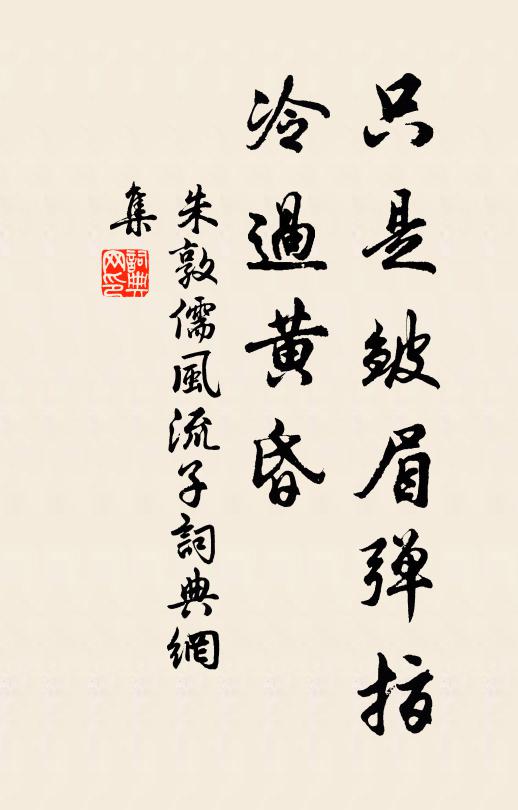 只是皱眉弹指
冷過黄昏
朱敦儒風流子詞典網
集
詞典网印